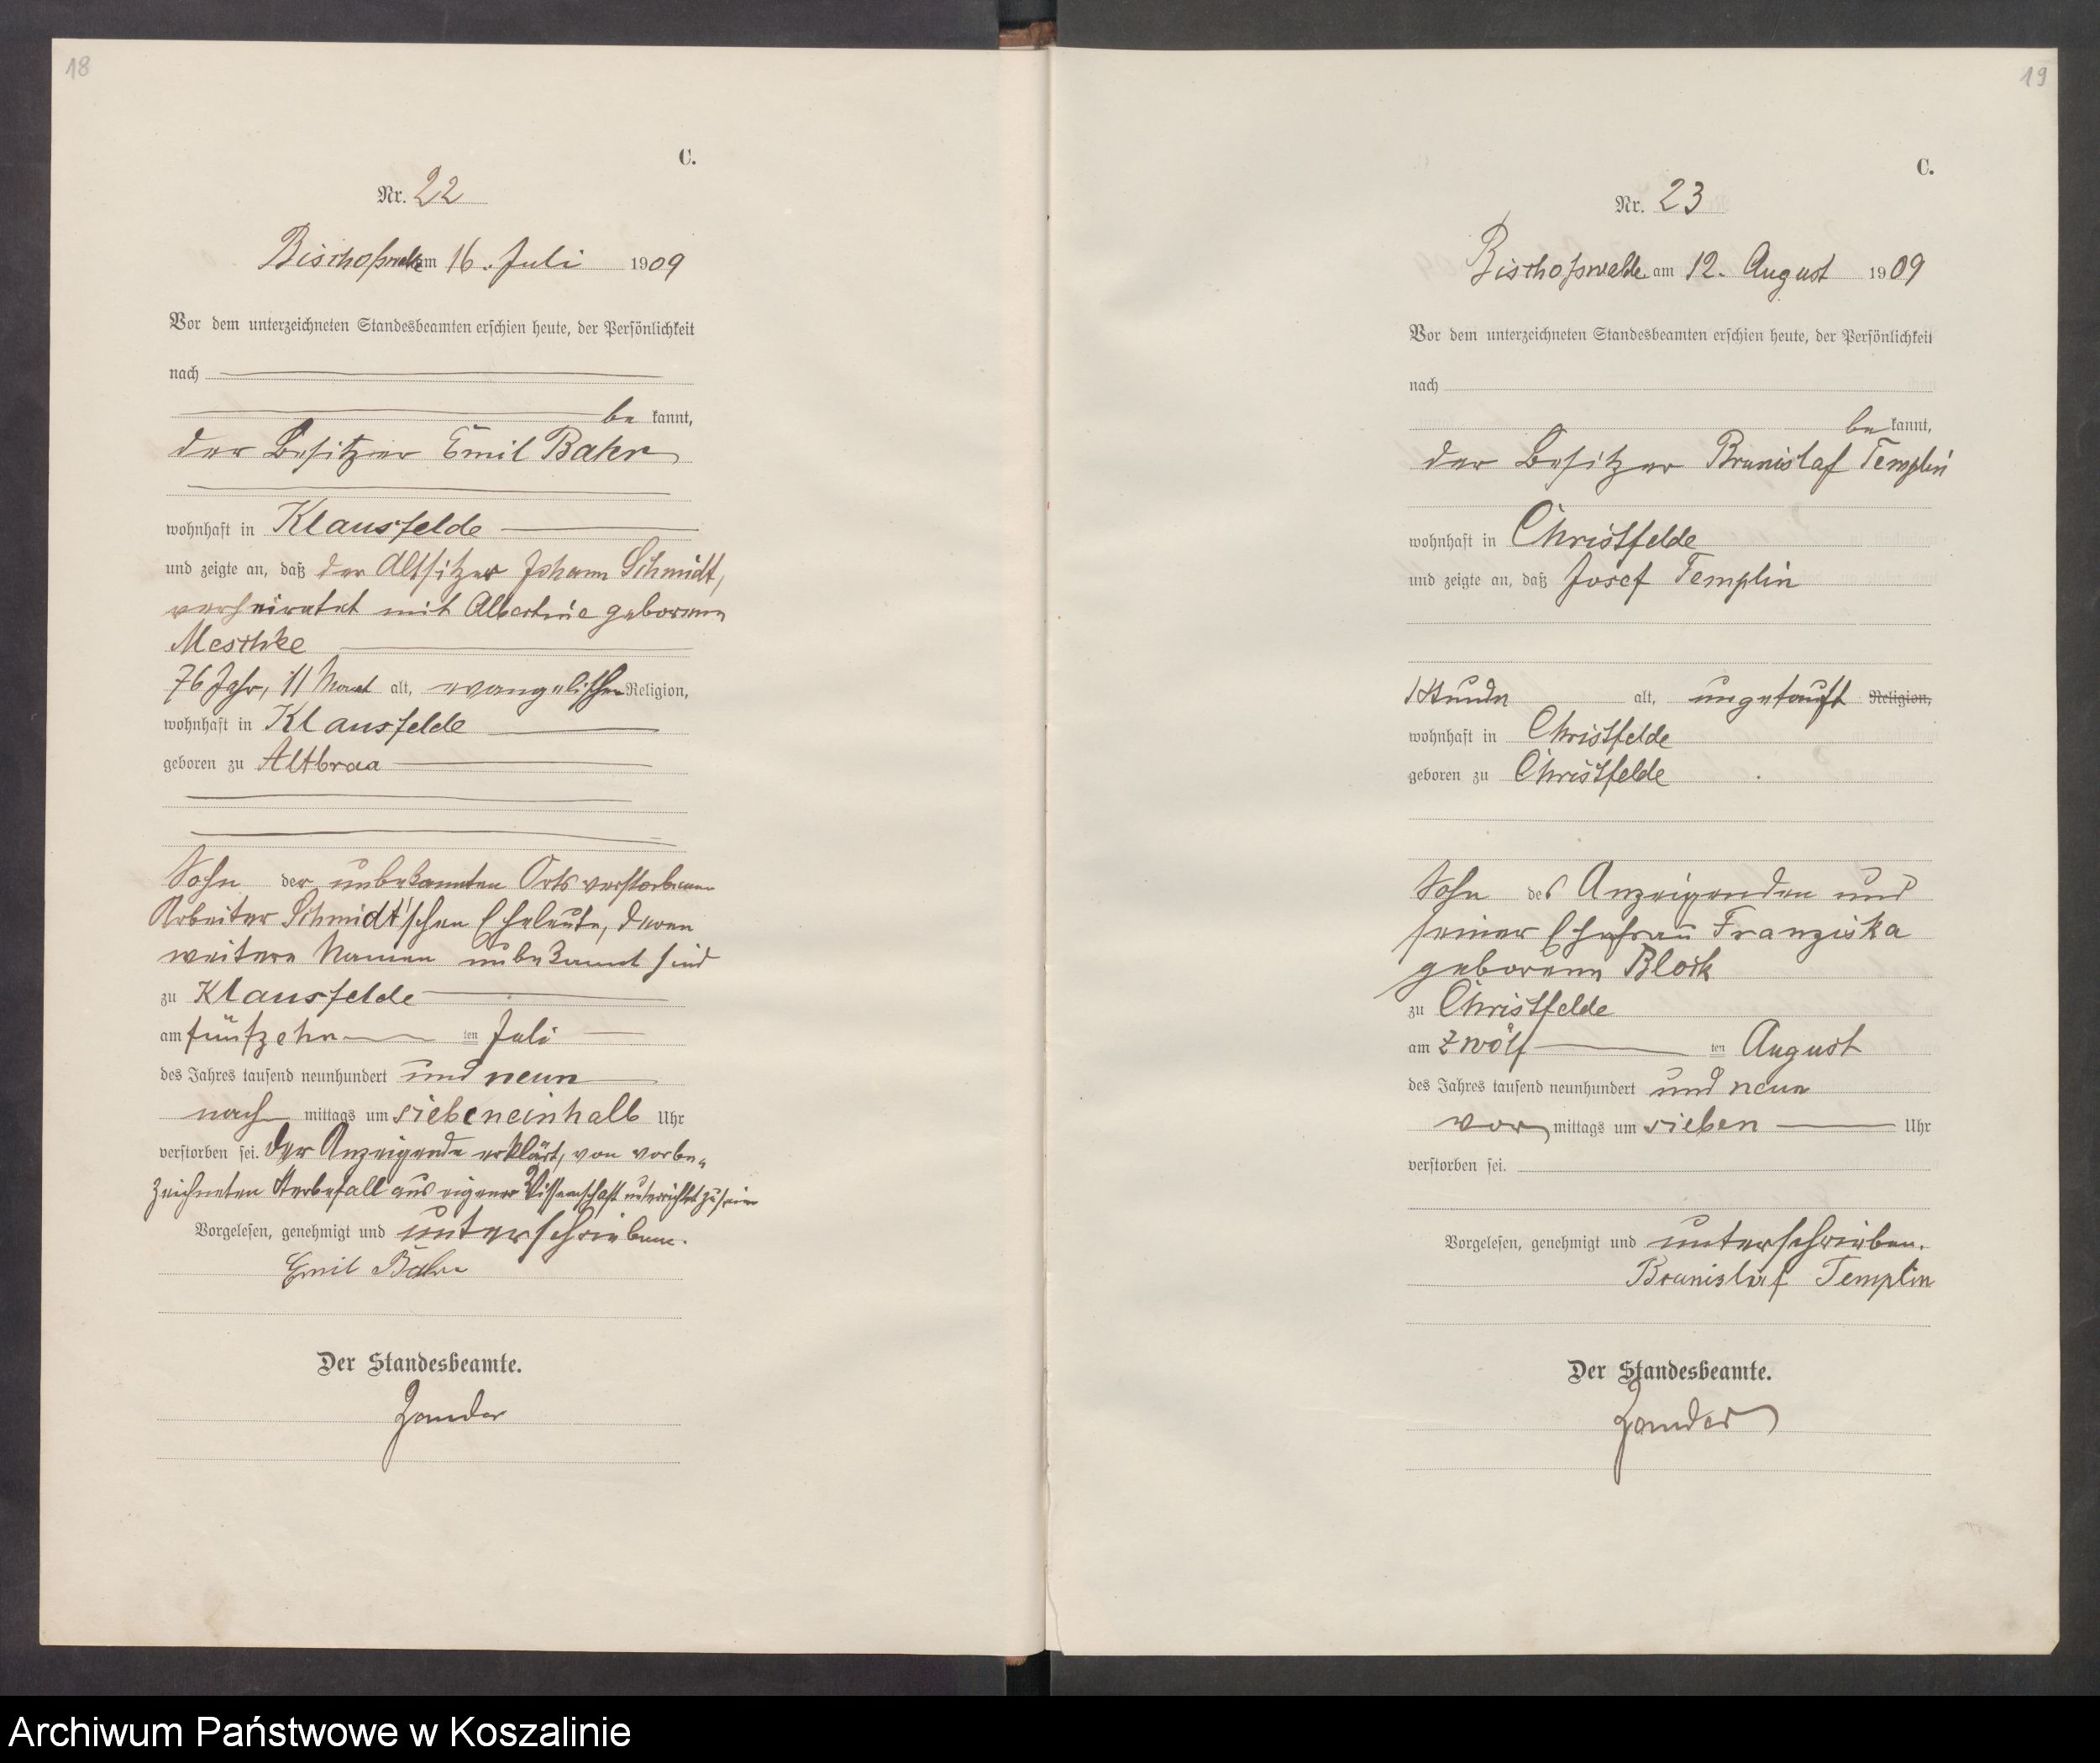 18
C.
Nr. 22
Bischofswalde am 16. Juli 1909
Vor dem unterzeichneten Standesbeamten erschien heute, der Persönlichkeit
nach
be kannt,
der Besitzer Emil Bahr
wohnhaft in Klausfelde
und zeigte an, daß der Altsitzer Johann Schmidt,
verheiratet mit Albertine geborenen
Meschke
76 Jahr, 11 Monat alt, evangelischer Religion,
wohnhaft in Klausfelde
geboren zu Altbraa
Sohn der unbekannten Orts verstorbenen
Arbeiter Schmidt'schen Eheleute, deren
weitere Namen unbekannt sind
zu Klausfelde
am fünfzehn ten Juli
des Jahres tausend neunhundert und neun
nach mittags um siebeneinhalb Uhr
verstorben sei. Der Anzeigende erklärt, von vorbe„
zeichneten Sterbefall aus eigener Wissenschaft unterrichtet zu sein
Vorgelesen, genehmigt und unterschrieben.
Emil Bahr
Der Standesbeamte.
Zander
19
C.
Nr. 23
Bischofswalde am 12. August 1909
Vor dem unterzeichneten Standesbeamten erschien heute, der Persönlichkeit
nach
be kannt,
der Besitzer Brunislaf Templin
wohnhaft in Christfelde
und zeigte an, daß Josef Templin
1 Stunde alt, ungetauft Religion,
wohnhaft in Christfelde
geboren zu Christfelde
Sohn des Anzeigenden und
seiner Ehefrau Franziska
geborenen Block
zu Christfelde
am zwölf ten August
des Jahres tausend neunhundert und neun
vor mittags um sieben Uhr
verstorben sei.
Vorgelesen, genehmigt und unterschrieben.
Brunislaf Templin
Der Standesbeamte.
Zander
Archiwum Państwowe w Koszalinie